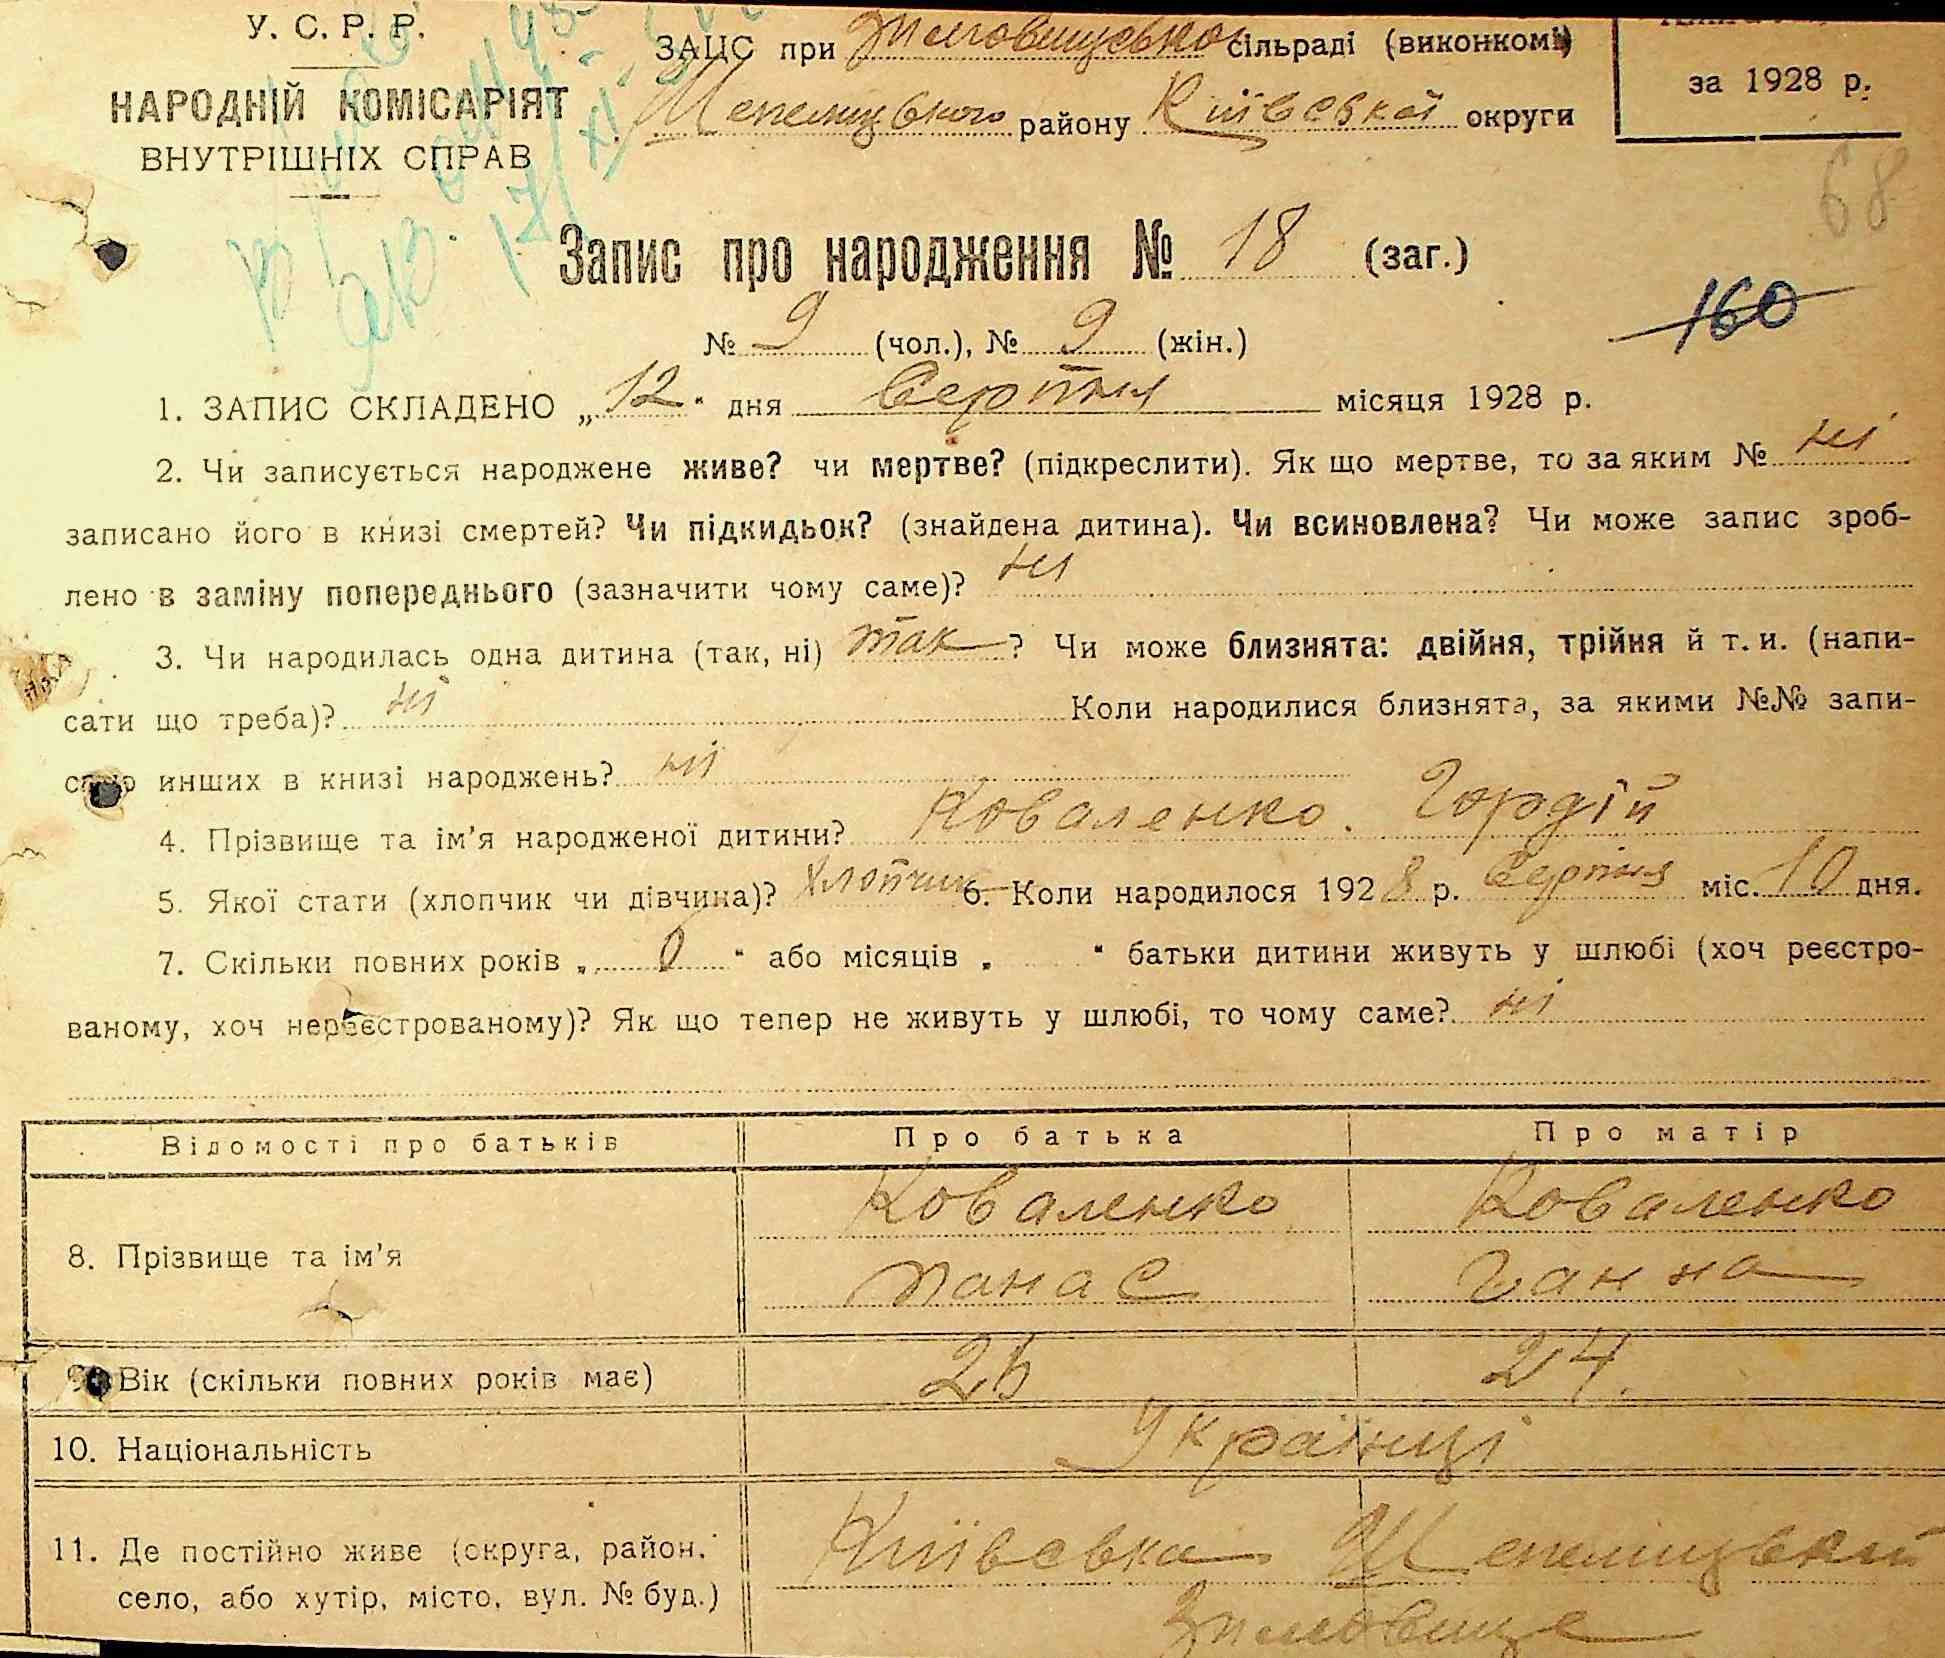 У. С. Р. Р.
НАРОДНІЙ КОМІСАРІЯТ
ВНУТРІШНІХ СПРАВ
ЗАЦС при сільраді (виконкомі)
Шепелицького району Київської округи
за 1928 р.
68
Запис про народження № 18 (заг.)
160
№ 9 (чол.), № 9 (жін.)
1. ЗАПИС СКЛАДЕНО „12“ дня Серпня місяця 1928 р.
2. Чи записується народжене живе? чи мертве? (підкреслити). Як що мертве, то за яким № ні
записано його в книзі смертей? Чи підкидьок? (знайдена дитина). Чи всиновлена? Чи може запис зроб-
лено в заміну попереднього (зазначити чому саме)? ні
3. Чи народилась одна дитина (так, ні) так? Чи може близнята: двійня, трійня й т. и. (напи-
сати що треба)? ні Коли народилися близнята, за якими №№ запи-
сано инших в книзі народжень? ні
4. Прізвище та ім'я народженої дитини? Коваленко. Гордій
5. Якої стати (хлопчик чи дівчина)? Хлопчик 6. Коли народилося 1928 р. Серпня міс. 10 дня.
7. Скільки повних років „ 0 “ або місяців „ “ батьки дитини живуть у шлюбі (хоч реєстро-
ваному, хоч нереєстрованому)? Як що тепер не живуть у шлюбі, то чому саме? ні
Відомості про батьків Про батька Про матір
8. Прізвище та ім'я Коваленко Коваленко
Панас Ганна
9. Вік (скільки повних років має) 24.
10. Національність Українці
11. Де постійно живе (округа, район, Київська Шепелицький
село, або хутір, місто, вул. № буд.)